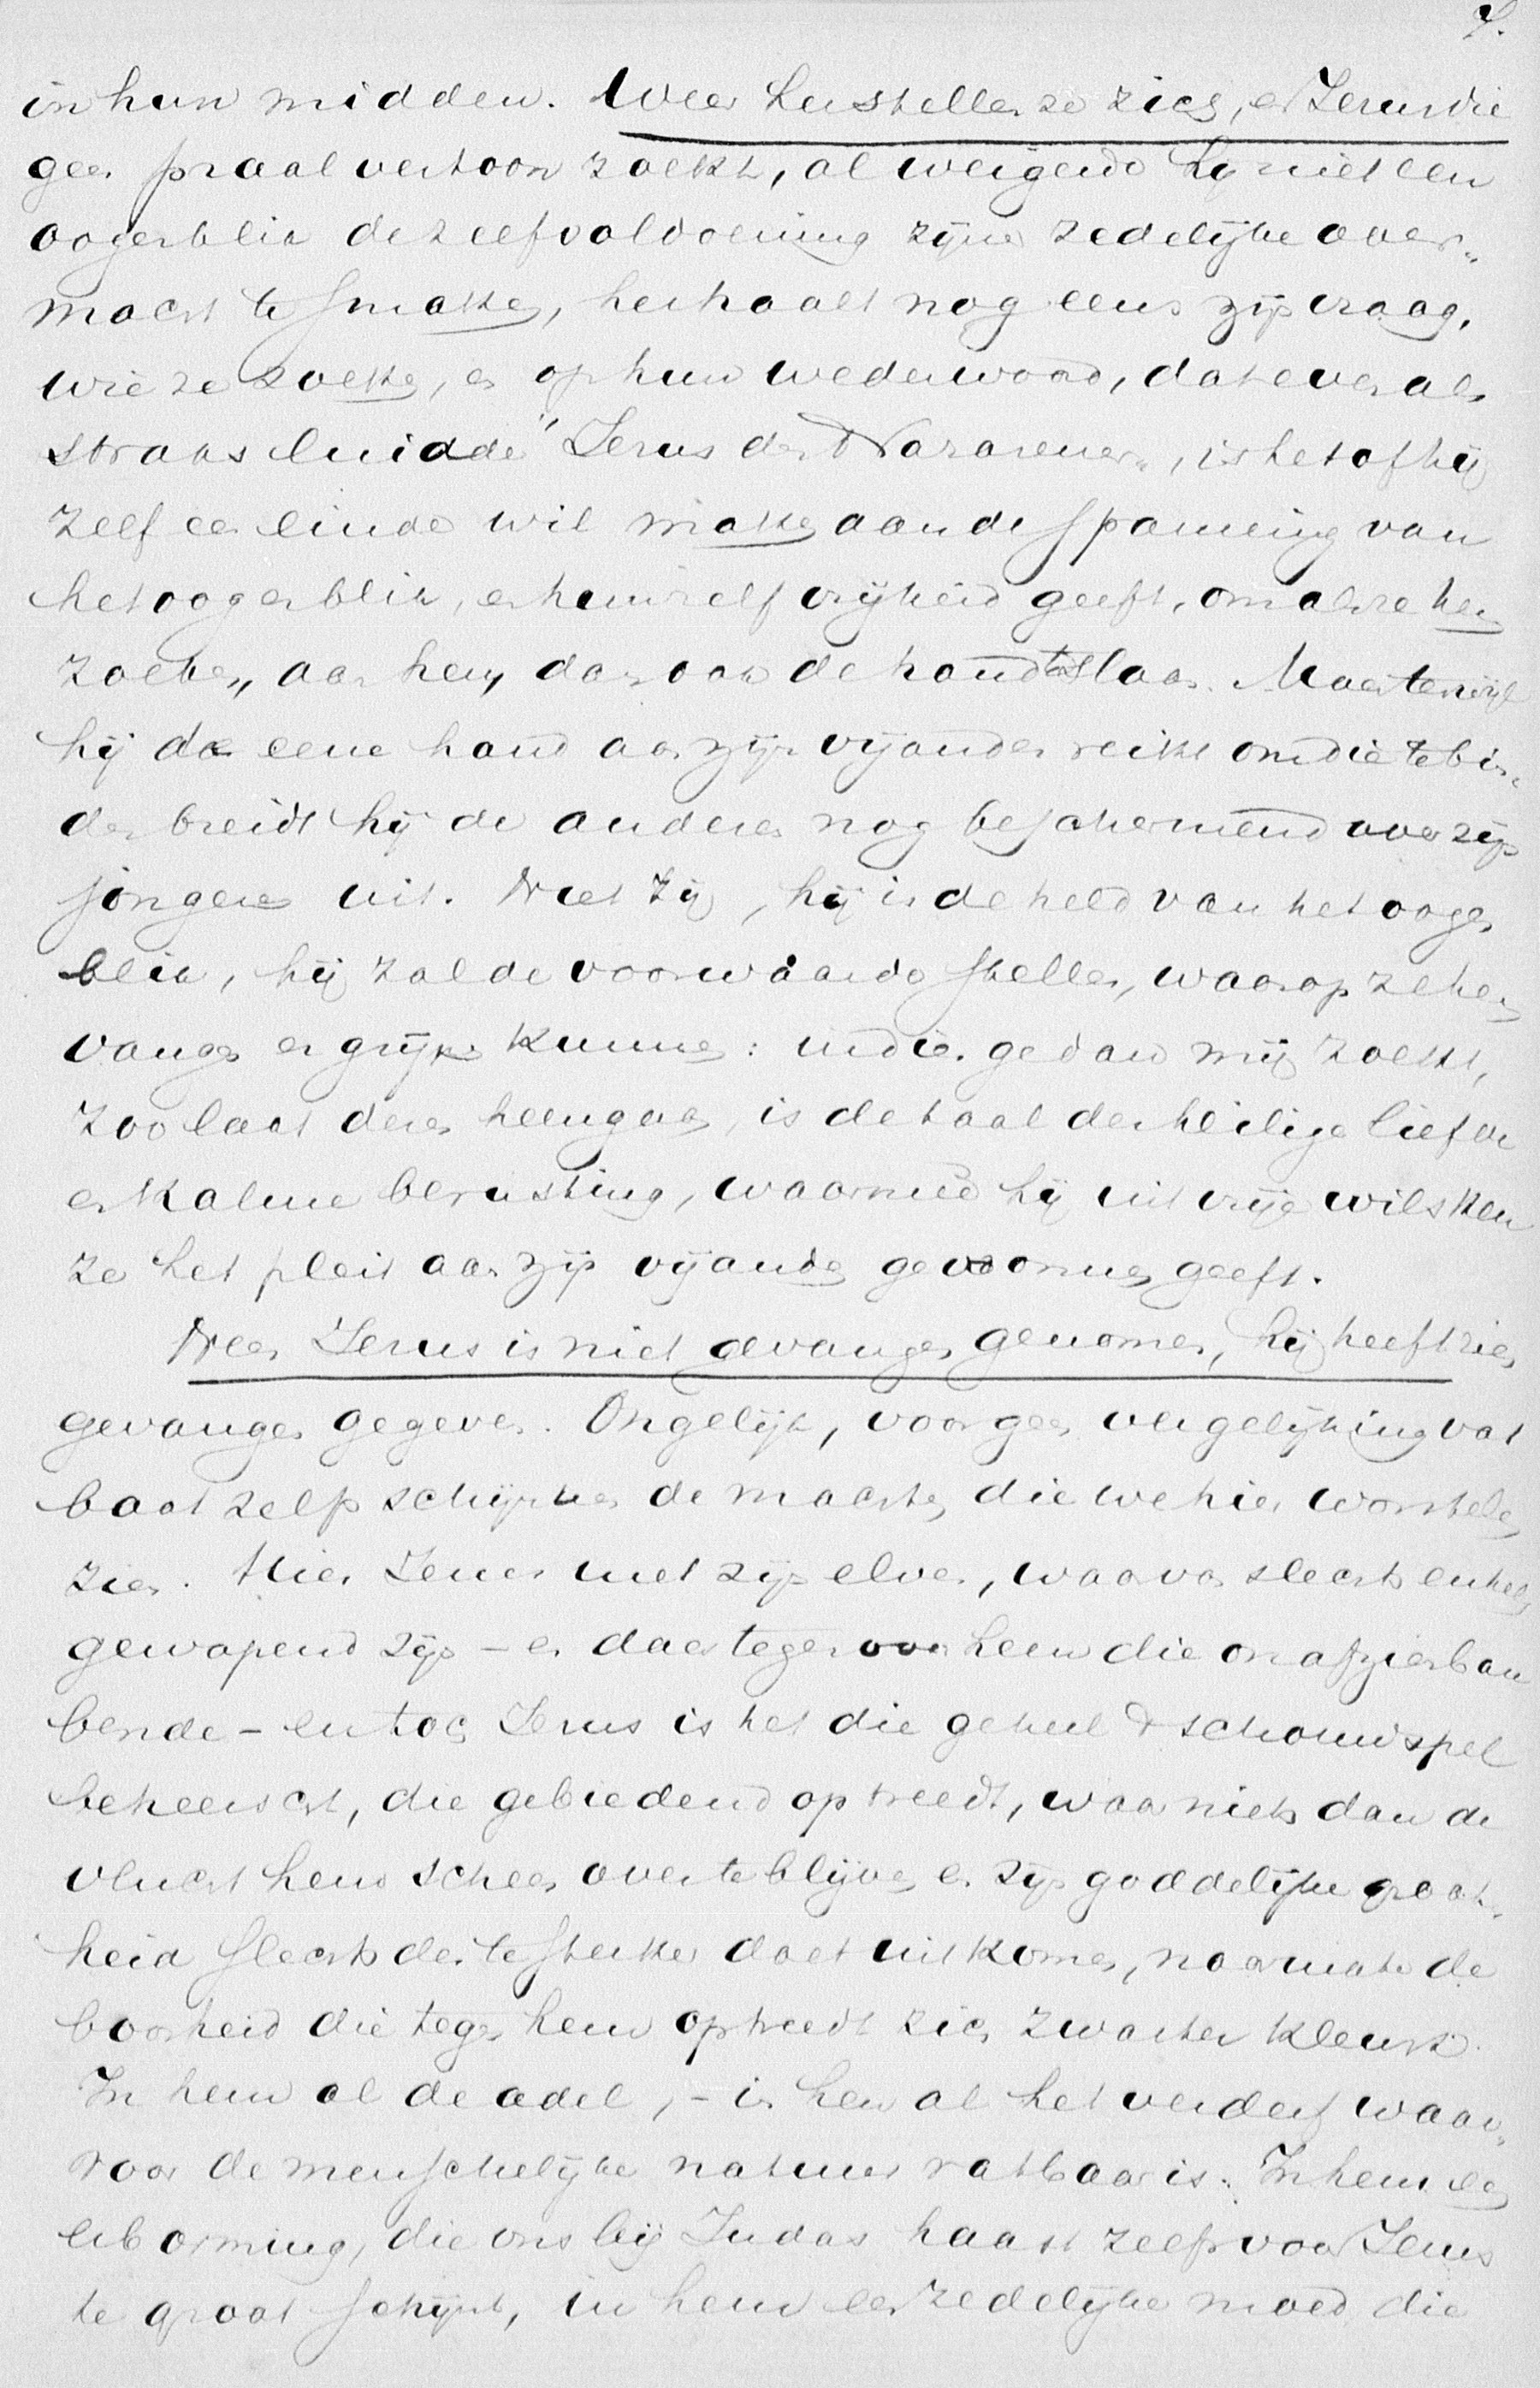 7.
in hun midden. Weer herstellen ze zich, en Jezus die
geen praalvertoon zoekt, al weigerde hij niet een
oogenblik de zelfvoldoening zijner zedelijke over„
macht te smaken, herhaalt nog eens zijn vraag,
wie ze zoeken, en op hun wederwoord, dat even als
straks luidde „Jezus den Nazarener„, is het of hij
zelf een einde wil maken aan de spanning van
het oogenblik, en hun zelf vrijheid geeft, om als ze hem
zoeken, aan hem dan ook de hand te slaan. Maar terwijl
hij de eene hand aan zijn vijanden reikt om die te bin„
den breidt hij de andere nog beschermend over zijn
jongeren uit. Niet zij, hij is de held van het oogen
blik, hij zal de voorwaarde stellen, waarop ze hem
vangen en grijpen kunnen: indien ge dan mij zoekt,
zoo laat deze heengaan, is de taal der heilige liefde
en kalme berusting, waarmeê hij uit vrije wilskeu
ze het pleit aan zijn vijanden gewonnen geeft.
Neen Jezus is niet gevangen genomen, hij heeft zich
gevangen gegeven. Ongelijk, voor geen vergelijking vat
baar zelfs schijnen de machten, die we hier worstelen
zien. Hier Jezus met zijn elven, waarvan slechts enkelen
gewapend zijn – en daar tegenover hem die onafzienbare
bende – en toch Jezus is het die geheel 't schouwspel
beheerscht, die gebiedend optreedt, waar niets dan de
vlucht hem scheen over te blijven en zijn goddelijke groot„
heid slechts des te sterker doet uitkomen, naarmate de
boosheid die tegen hem optreedt zich zwarter kleurt.
In hem al de adel, – in hen al het verderf waar„
voor de menschelijke natuur vatbaar is. In hem een
erbarming, die ons bij Judas haast zelfs voor Jezus
te groot schijnt, in hem een zedelijke moed die